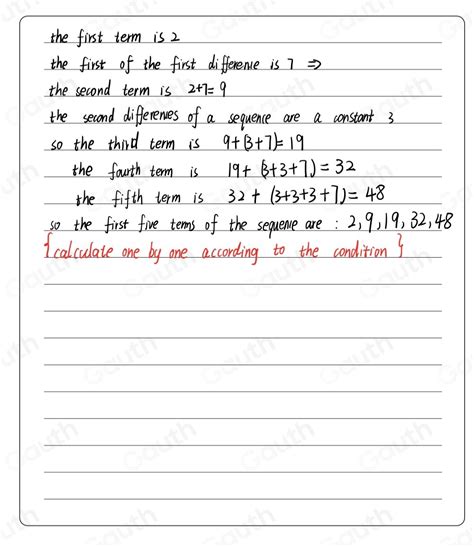 the first term is 2
the first of the first difference is 7 ⇒
the second term is 2+7=9
the second differences of a sequence are a constant 3
so the third term is 9+(3+7)=19
the fourth term is 19+(3+3+7)=32
the fifth term is 32+(3+3+3+7)=48
so the first five tems of the sequence are : 2,9,19,32,48
{calculate one by one according to the condition}